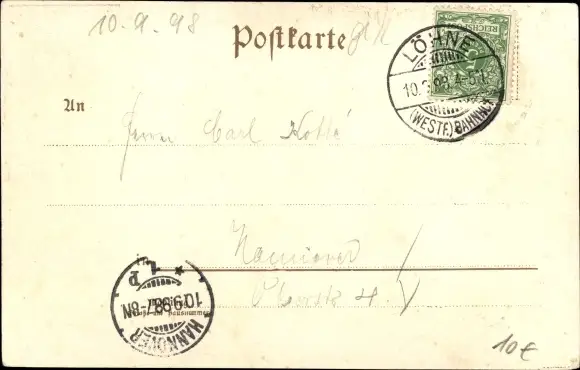 10.9.98
Postkarte
LÖHNE
10.9.98.4-5N.
(WESTF.) BAHNHOF
REICHSPOST
5
An
Herrn Carl Kotté
Hannover
10.9.98.7-8N
HANNOVER
10€